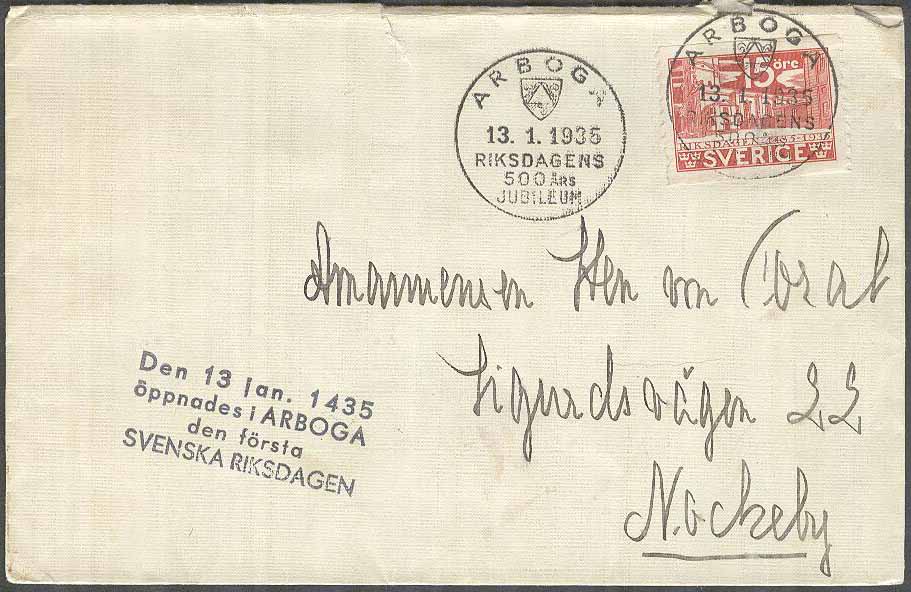 ARBOGA
13. 1. 1935
RIKSDAGENS
500 ÅRS
JUBILEUM
ARBOGA
15 öre
13. 1. 1935
RIKSDAGENS
500 ÅRS
RIKSDAGEN 1435-1935
SVERIGE
Sten von
Sigurdsvägen 22
Nockeby
Den 13 jan. 1435
öppnades i ARBOGA
den första
SVENSKA RIKSDAGEN